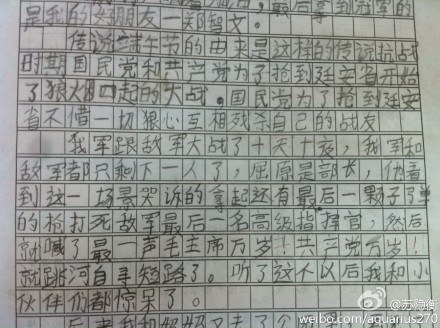 最后拿到冠军的
是我的好朋友一郑智文。
传说端午节的由来是这样的传说抗战
时期国民党和共产党为了抢到延安省开始
了狼烟四起的大战。国民党为了抢到延安
省不惜一切狠心互相残杀自己的战友
我军跟敌军大战了十天十夜,我军和
敌军都只剩下一人了,屈原是部长,他看
到这一场景哭诉的拿起还有最后一颗子弹
的枪打死敌军最后一名高级指挥官,然后
就喊了最一声毛主席万岁!!共产党万岁!
就跳河自寻短路了。听了这个以后我和小
伙伴们都惊呆了。
后者我和妈妈又去了个
@苏隐衡
weibo.com/aquarius270